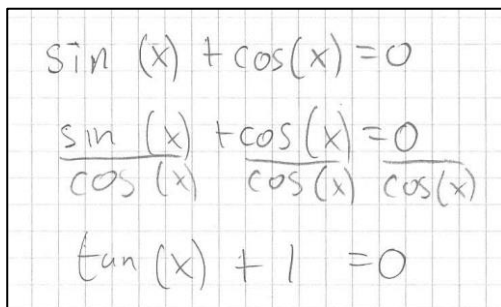 sin (x) + cos(x) = 0
sin (x) + cos (x) = 0
cos (x) cos (x) cos(x)
tan (x) + 1 = 0